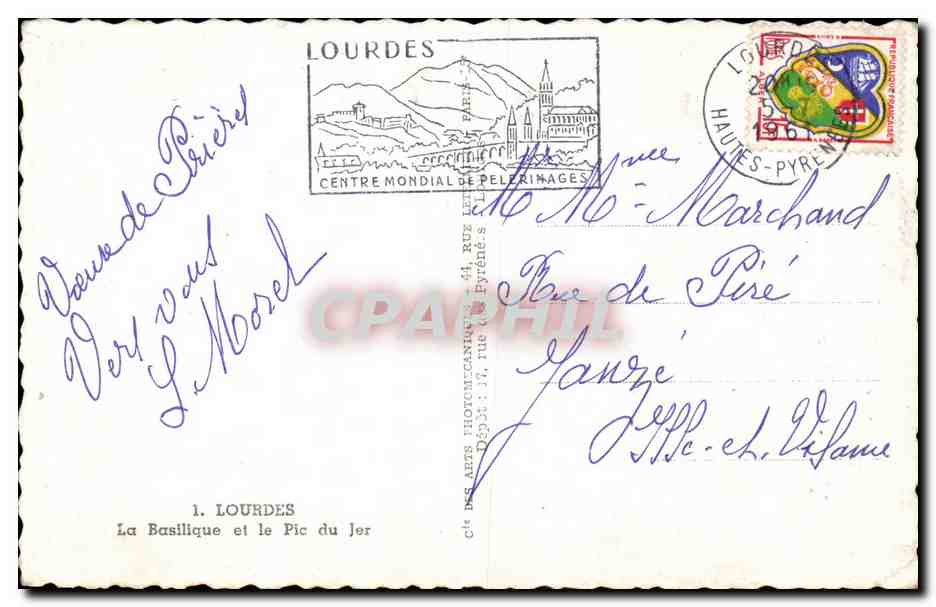 LOURDES
CENTRE MONDIAL DE PELERINAGES
LOURDES
1961
HAUTES-PYRENEES
REPUBLIQUE FRANCAISE
ALGER
de Prières
Vers vous
L. Morel
M Mme Marchand
Rue de Piré
Janzé
Ille-et-Vilaine
Cie DES ARTS PHOTOMECANIQUES - 44, RUE LETELLIER PARIS
Dépôt : 17, rue des Pyrénées
1. LOURDES
La Basilique et le Pic du Jer
CPAPHIL